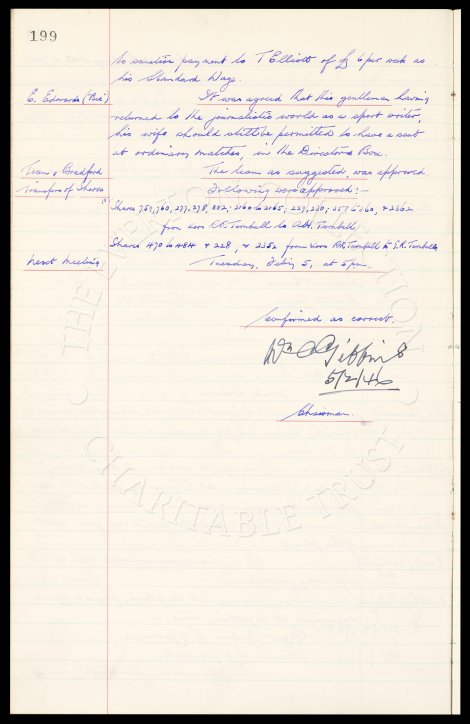 199
to sanction payment to T Elliott of £6 per week as
his Standard Wage.
E. Edwards ("Bee") It was agreed that this gentleman having
returned to the journalistic world as a sport writer,
his wife should still be permitted to have a seat
at ordinary matches, in the Directors Box.
Team v Bradford The team as suggested, was approved
Transfers of Shares Following were approved:-
Shares 759, 760, 277, 278, 2160 to 2165, 229, 230, & 2362
from Exors R.H. Turnbull to A.H. Turnbull
Shares 470 to 484 & 228, & 2352 from Exors R.H. Turnbull to G.R. Turnbull
Next Meeting Tuesday, Feb'y 5, at 5 pm.
Confirmed as correct.
Wm C Gibbins
5/2/46
Chairman.
THE EVERTON COLLECTION
CHARITABLE TRUST